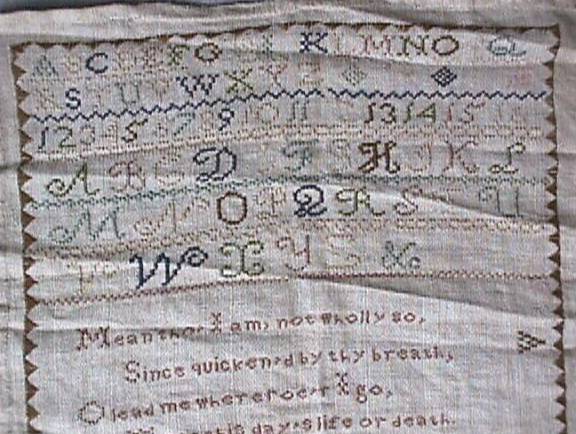 A B C D E F G I K L M N O Q
R S T U V W X Y Z
1 2 3 4 5 6 7 8 9 10 11 13 14 15
A B C D F G H I K L
M N O P Q R S T U
V W X Y Z &
Mean tho, I am, not wholly so,
Since quicken,d by thy breath,
O lead me wheresoe,r I go,
day,s life or death.